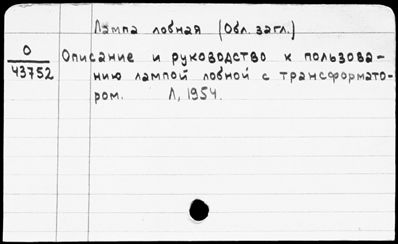 Лампа лобная (Обл. загл.)
О
43752
Описание и руководство к пользова-
нию лампой лобной с трансформато-
ром. Л, 1954.